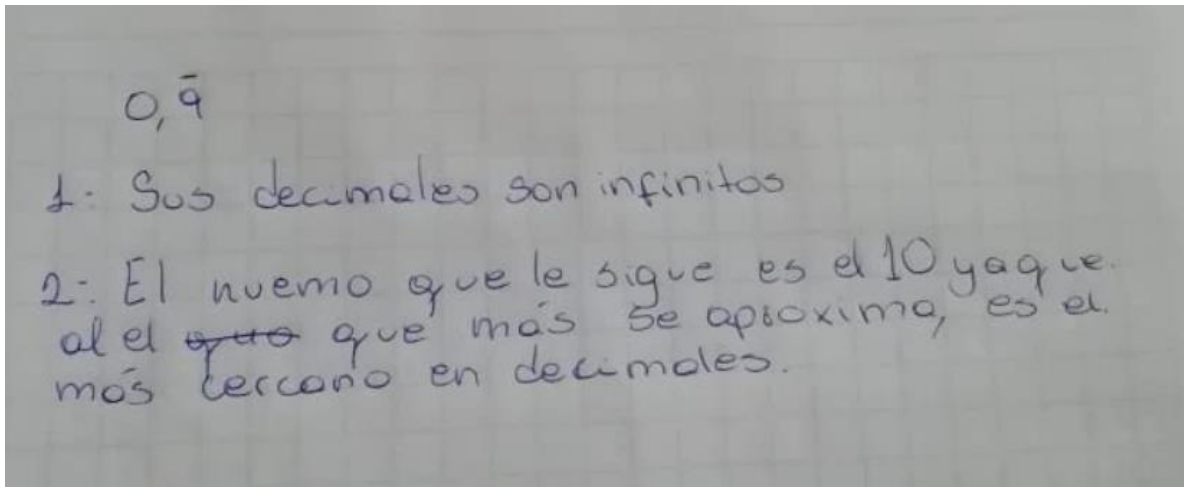 0,9̄
1: Sus decimales son infinitos
2-. El nuemo que le sigue es el 10 yaque.
al el que que más se aproxima, es el.
más cercano en decimales.